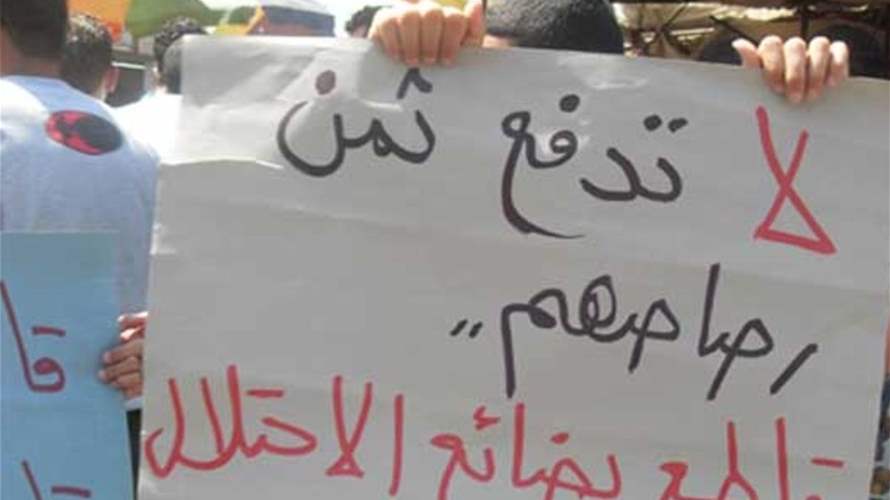 لا تدفع ثمن
رصاصهم ..
قاطع بضائع الاحتلال
قا